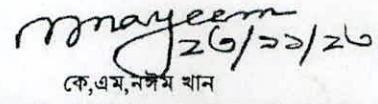 mnayeem
২৩/১১/২৩
কে,এম,নঈম খান